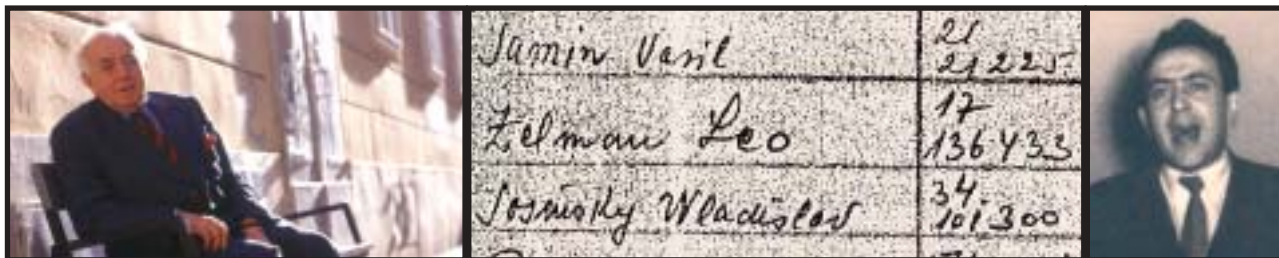 Jamin Vasil 21
21225
Zelman Leo 17
136433
Wladislav 34
101300